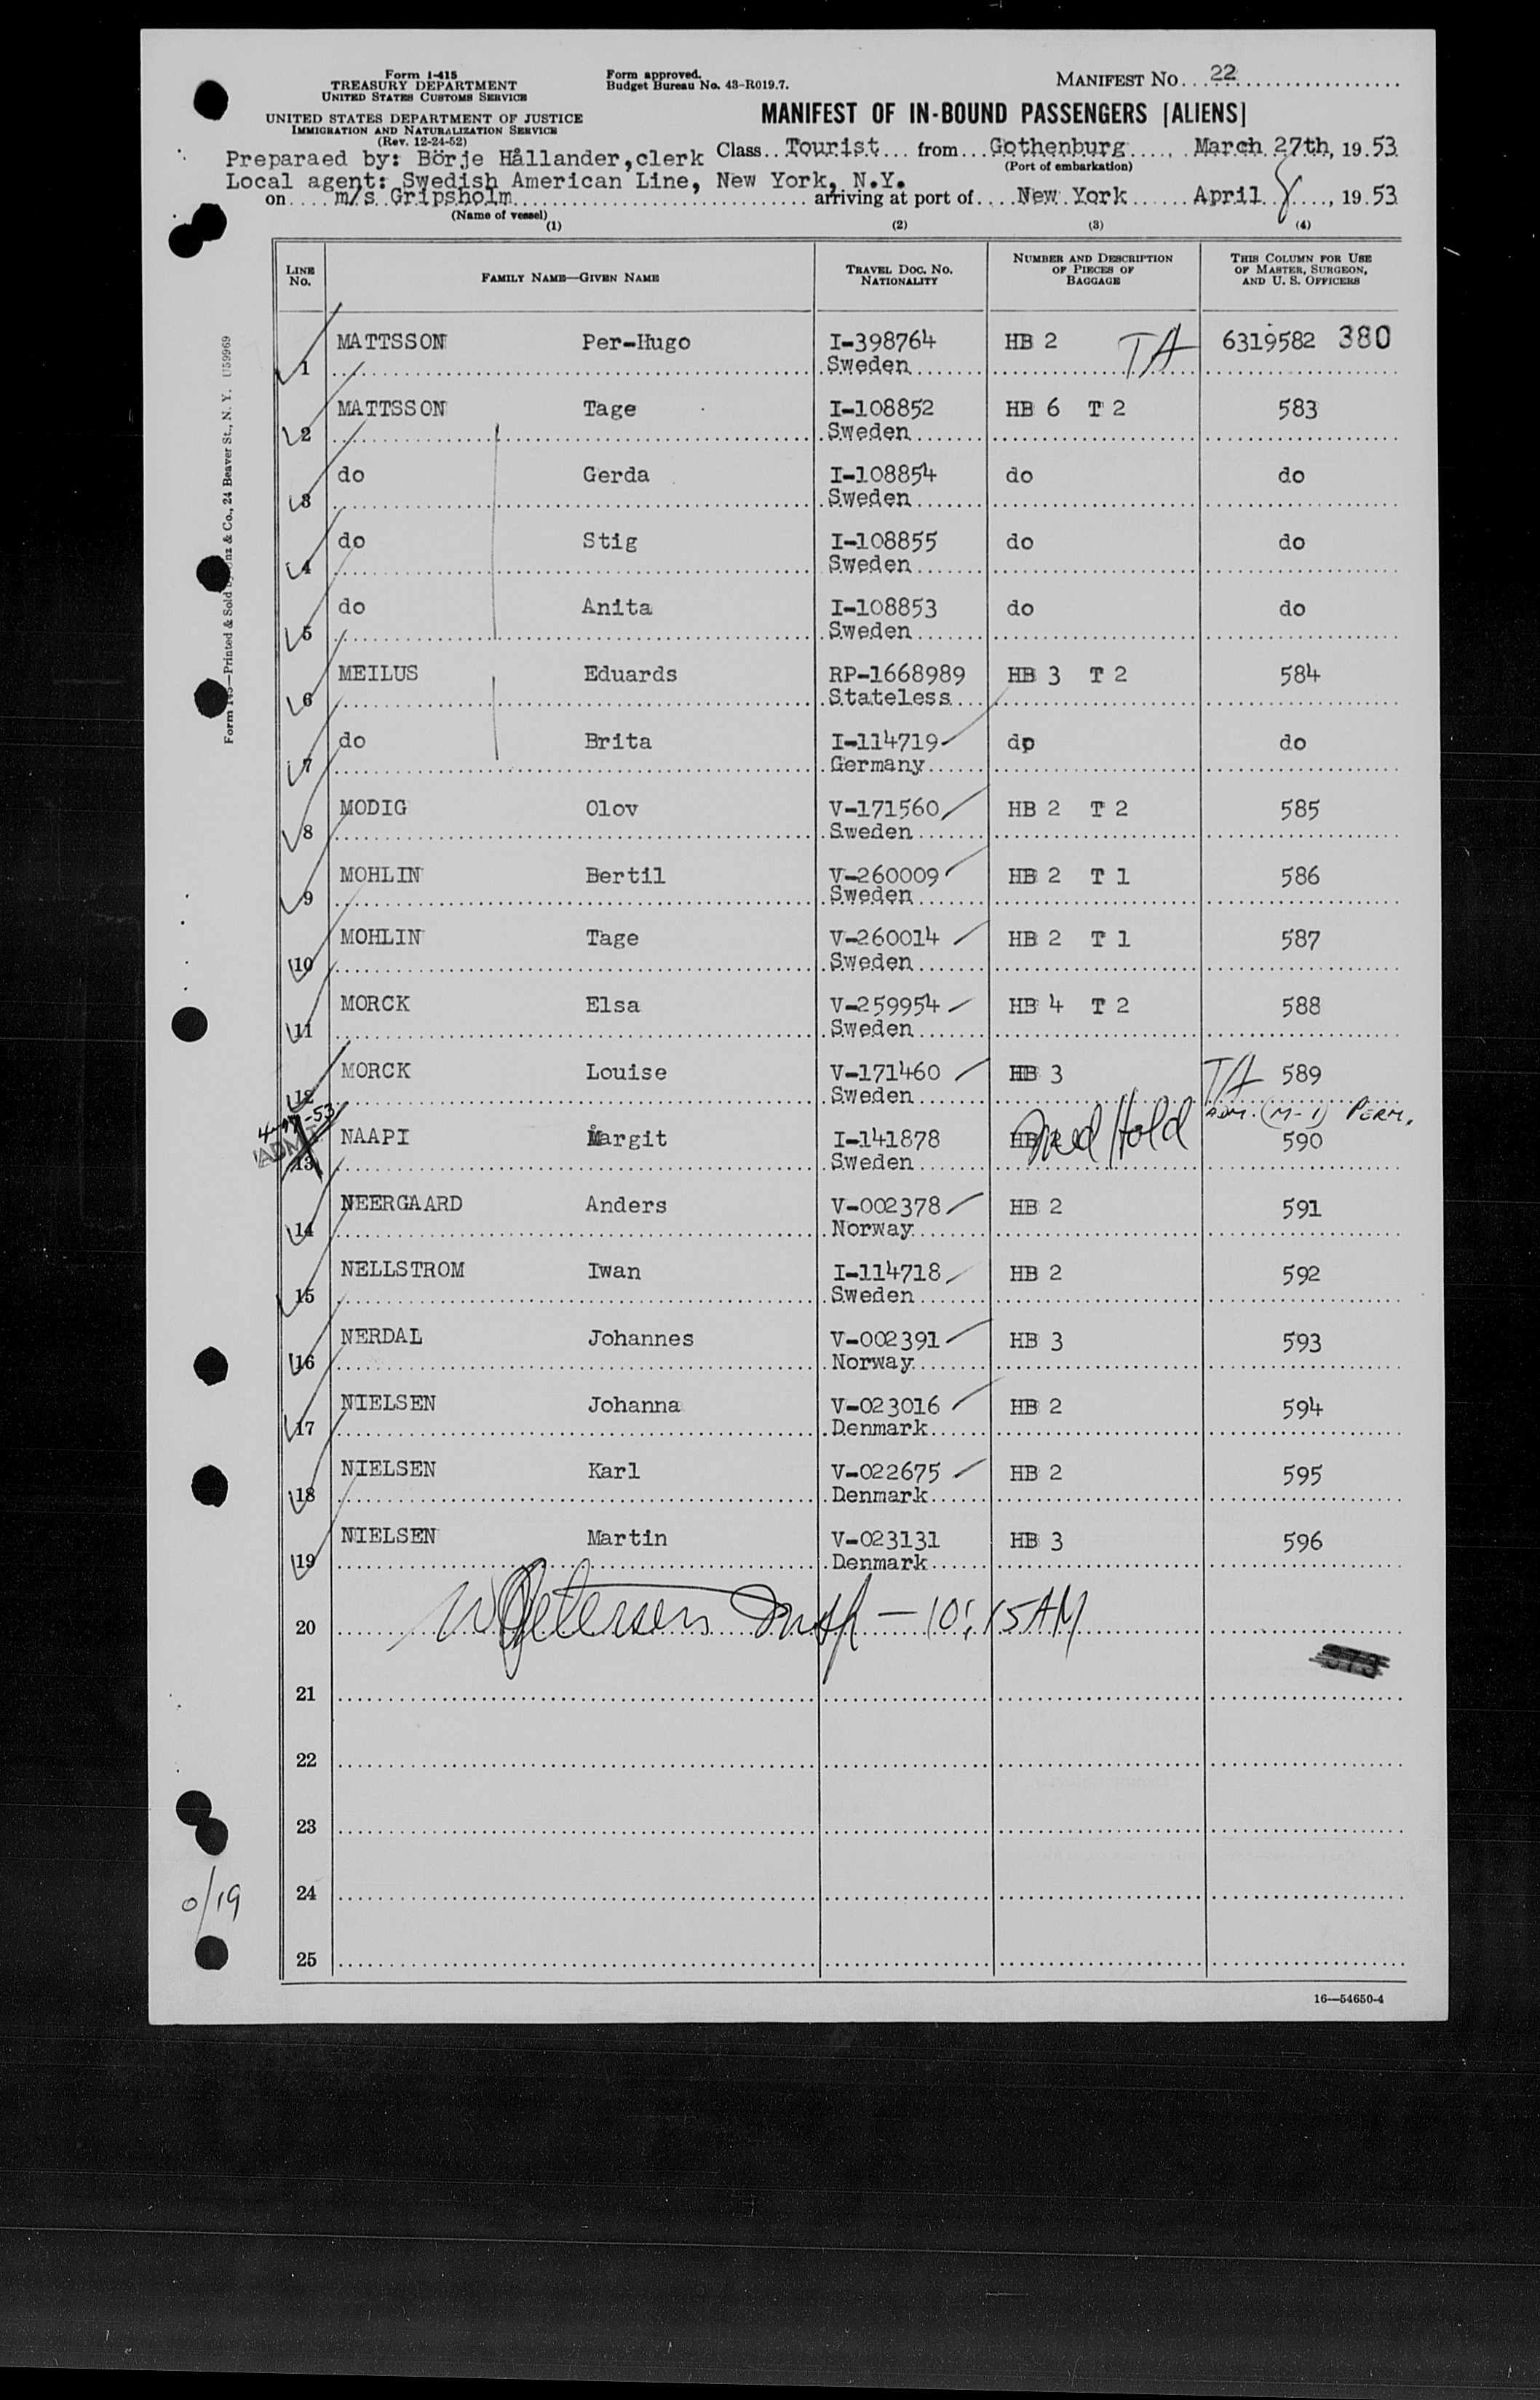 Form I-415
TREASURY DEPARTMENT
UNITED STATES CUSTOMS SERVICE
UNITED STATES DEPARTMENT OF JUSTICE
IMMIGRATION AND NATURALIZATION SERVICE
(Rev. 12-24-52)
Form approved.
Budget Bureau No. 43-R019.7.
MANIFEST NO. 22
MANIFEST OF IN-BOUND PASSENGERS [ALIENS]
Preparaed by: Börje Hållander, clerk Class Tourist from Gothenburg, March 27th, 1953
(Port of embarkation)
Local agent: Swedish American Line, New York, N.Y.
on m/s Gripsholm arriving at port of New York April 8, 1953
(Name of vessel)
(1) (2) (3) (4)
LINE No. FAMILY NAME—GIVEN NAME TRAVEL DOC. NO. NATIONALITY NUMBER AND DESCRIPTION OF PIECES OF BAGGAGE THIS COLUMN FOR USE OF MASTER, SURGEON, AND U. S. OFFICERS
1 MATTSSON Per-Hugo I-398764 HB 2 TA 6319582 380
Sweden
2 MATTSSON Tage I-108852 HB 6 T 2 583
Sweden
3 do Gerda I-108854 do do
Sweden
4 do Stig I-108855 do do
Sweden
5 do Anita I-108853 do do
Sweden
6 MEILUS Eduards RP-1668989 HB 3 T 2 584
Stateless
7 do Brita I-114719 do do
Germany
8 MODIG Olov V-171560 HB 2 T 2 585
Sweden
9 MOHLIN Bertil V-260009 HB 2 T 1 586
Sweden
10 MOHLIN Tage V-260014 HB 2 T 1 587
Sweden
11 MORCK Elsa V-259954 HB 4 T 2 588
Sweden
12 MORCK Louise V-171460 HB 3 TA 589
Sweden
ADM. (M-1) PERM.
13 NAAPI Margit I-141878 HB Med Hold 590
Sweden
ADMT
14 NEERGAARD Anders V-002378 HB 2 591
Norway
15 NELLSTROM Iwan I-114718 HB 2 592
Sweden
16 NERDAL Johannes V-002391 HB 3 593
Norway
17 NIELSEN Johanna V-023016 HB 2 594
Denmark
18 NIELSEN Karl V-022675 HB 2 595
Denmark
19 NIELSEN Martin V-023131 HB 3 596
Denmark
20 Petersen Insp — 10:15 AM
373
21
22
23
24
25
0/19
16—54650-4